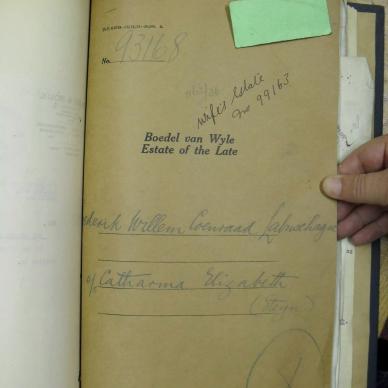 No. 93168
Wife's Estate
No 99163
Boedel van Wyle
Estate of the Late
ederik Willem Coenraad Labuschagne
Catharina Elizabeth
(Steyn)